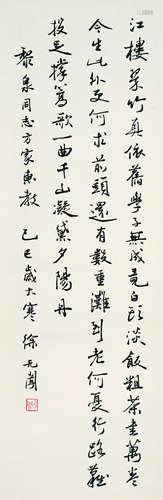 江樓竹真依舊學子無成竟白頭淡飯粗茶書萬卷
今生此外更何求前頭還有數重灘到老何憂行路難
投足撐篙歌一曲千山凝黛夕陽丹
黎泉同志方家惠教 己巳歲大寒 徐无聞